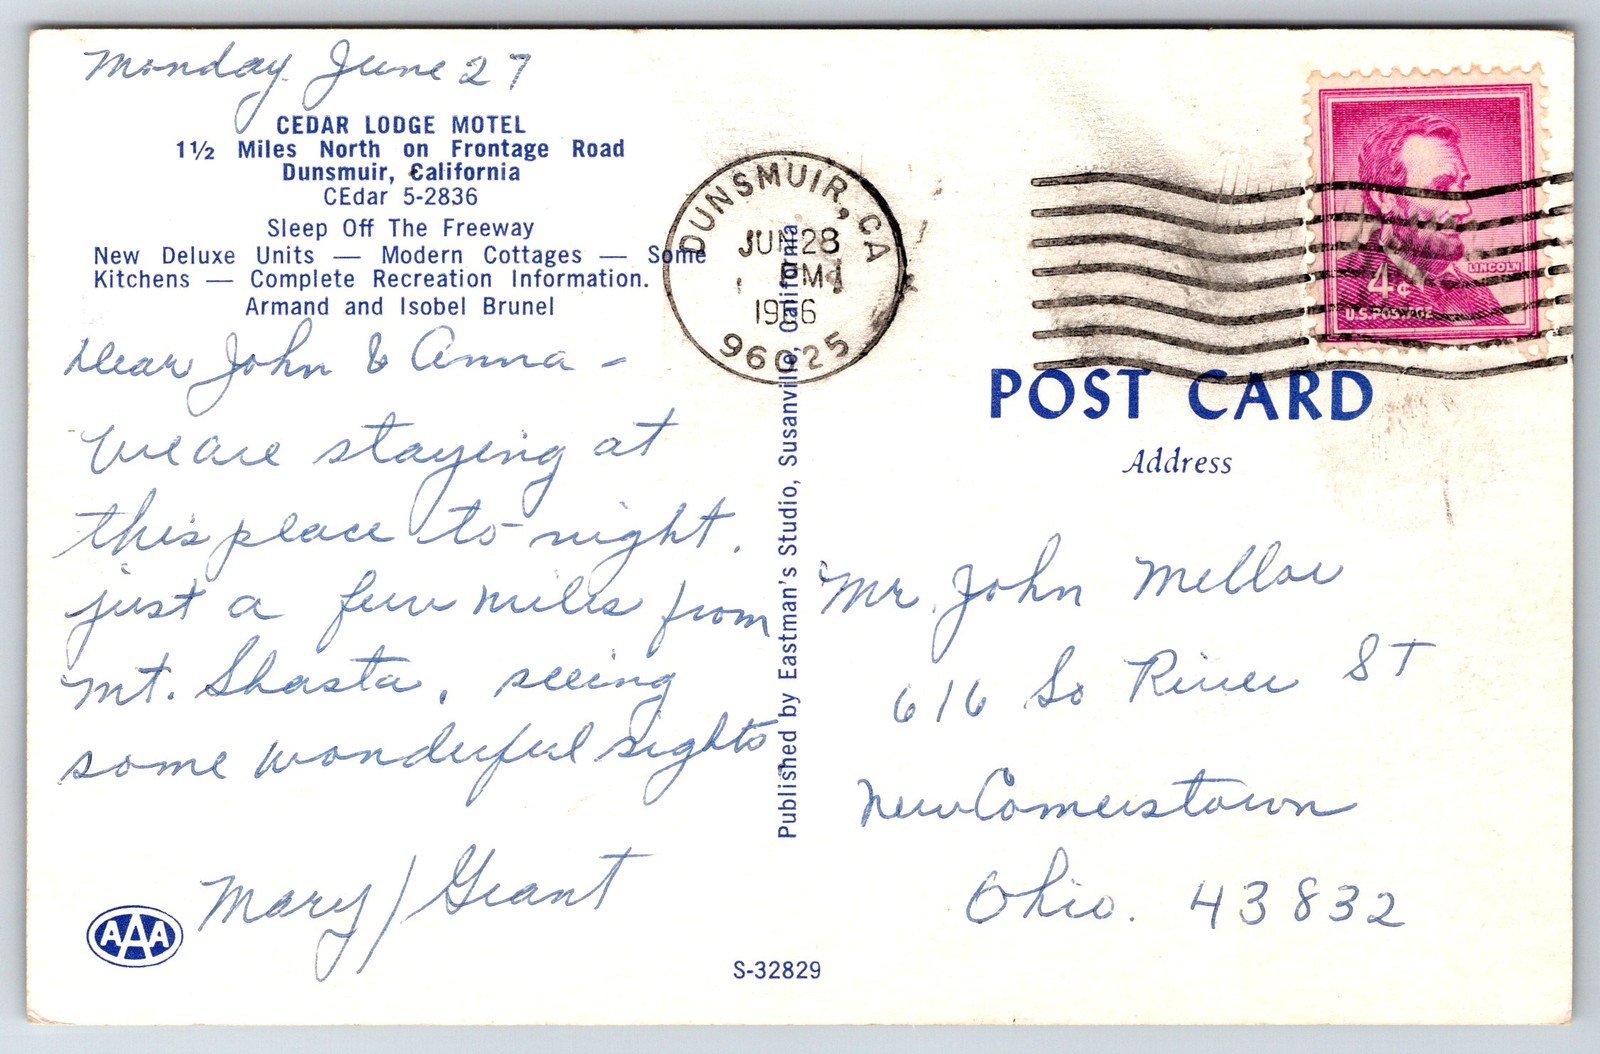 Monday June 27
CEDAR LODGE MOTEL
1½ Miles North on Frontage Road
Dunsmuir, California
CEdar 5-2836
Sleep Off The Freeway
New Deluxe Units — Modern Cottages — Some
Kitchens — Complete Recreation Information.
Armand and Isobel Brunel
Dear John & Anna –
We are staying at
this place to-night.
just a few miles from
Mt. Shasta, seeing
some wonderful sights
Mary/Grant
AAA
Published by Eastman's Studio, Susanville, California
S-32829
DUNSMUIR, CA
JUN 28
PM
1966
96025
LINCOLN
4¢
U.S. POSTAGE
POST CARD
Address
Mr. John Mellor
616 So River ST
NewComerstown
Ohio. 43832